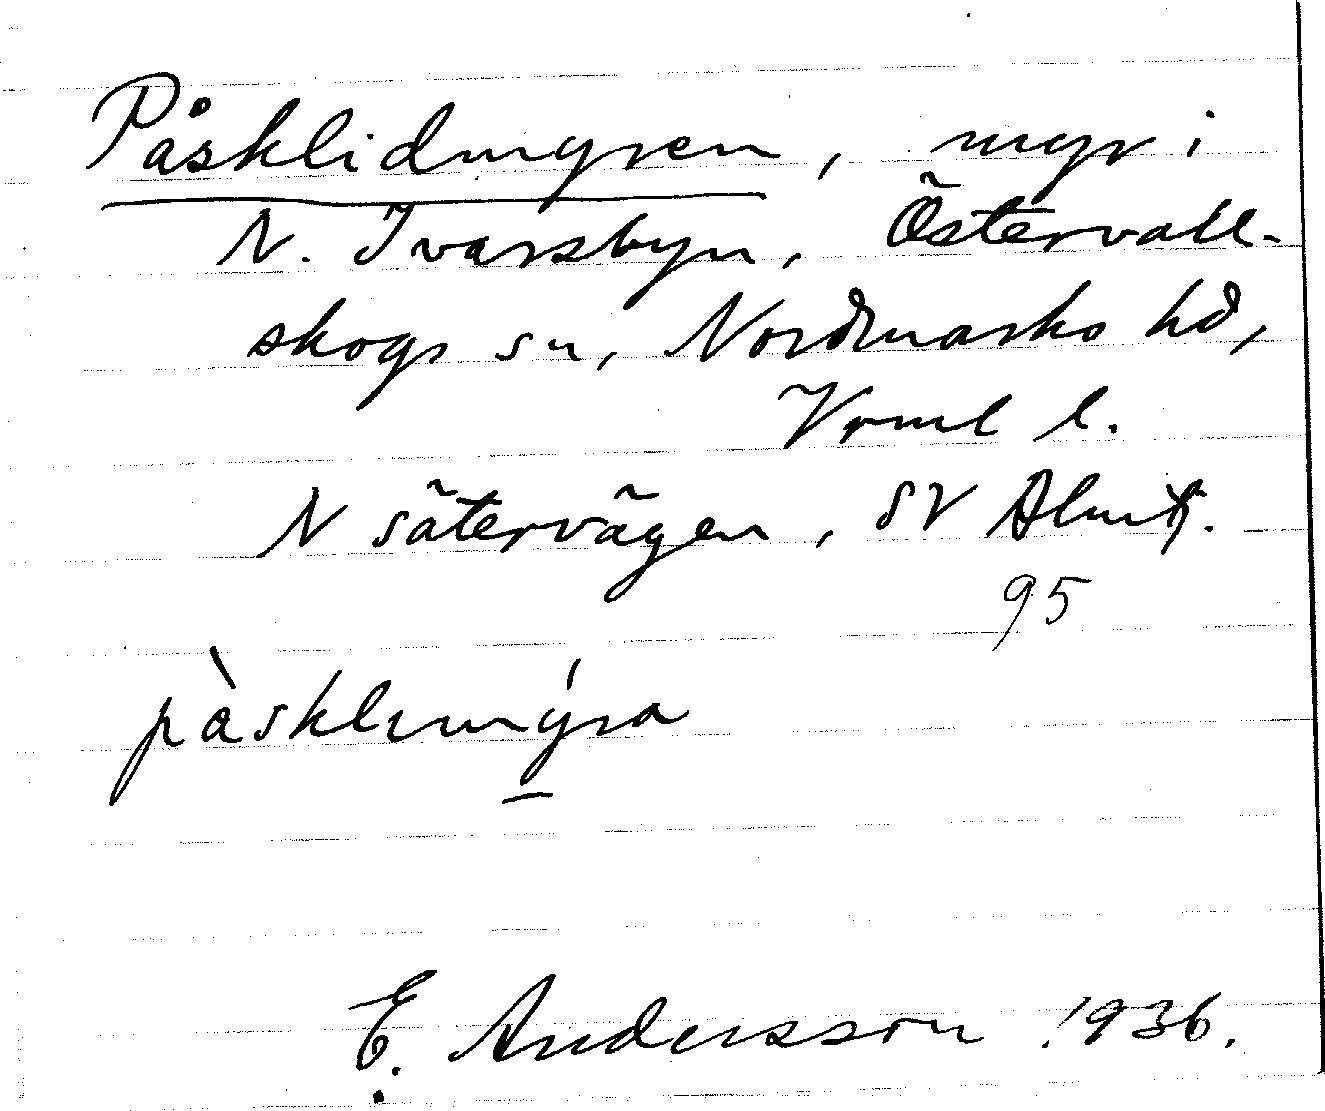 Påsklidmyren, myr i
N. Ivarsbyn, Östervall-
skogs sn, Nordmarks hd,
Vrml l.
N sätervägen, SV
95
pàsklımýra
E. Andersson 1936.